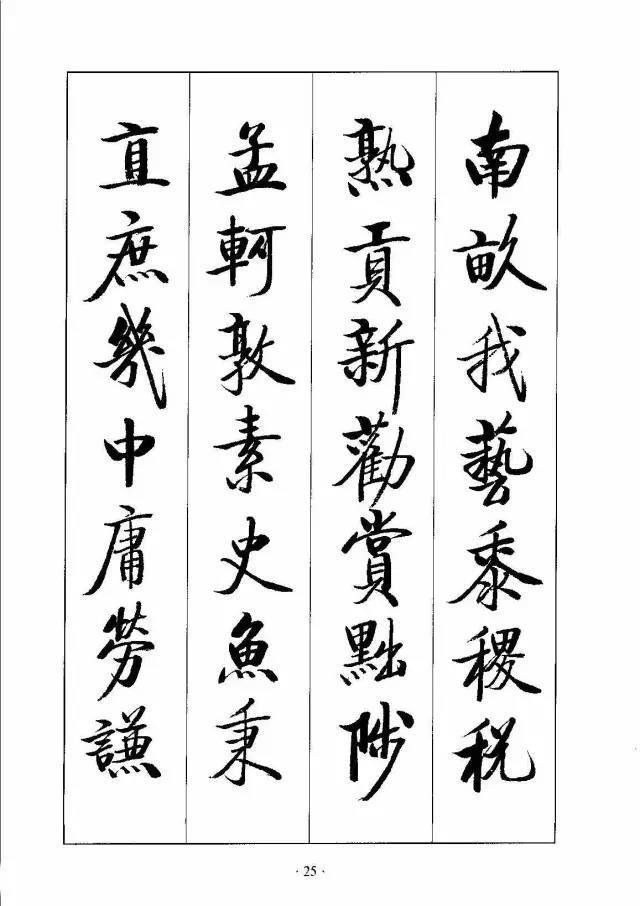 南畝我藝黍稷稅
熟貢新勸賞黜陟
孟軻敦素史魚秉
直庶幾中庸勞謙
· 25 ·